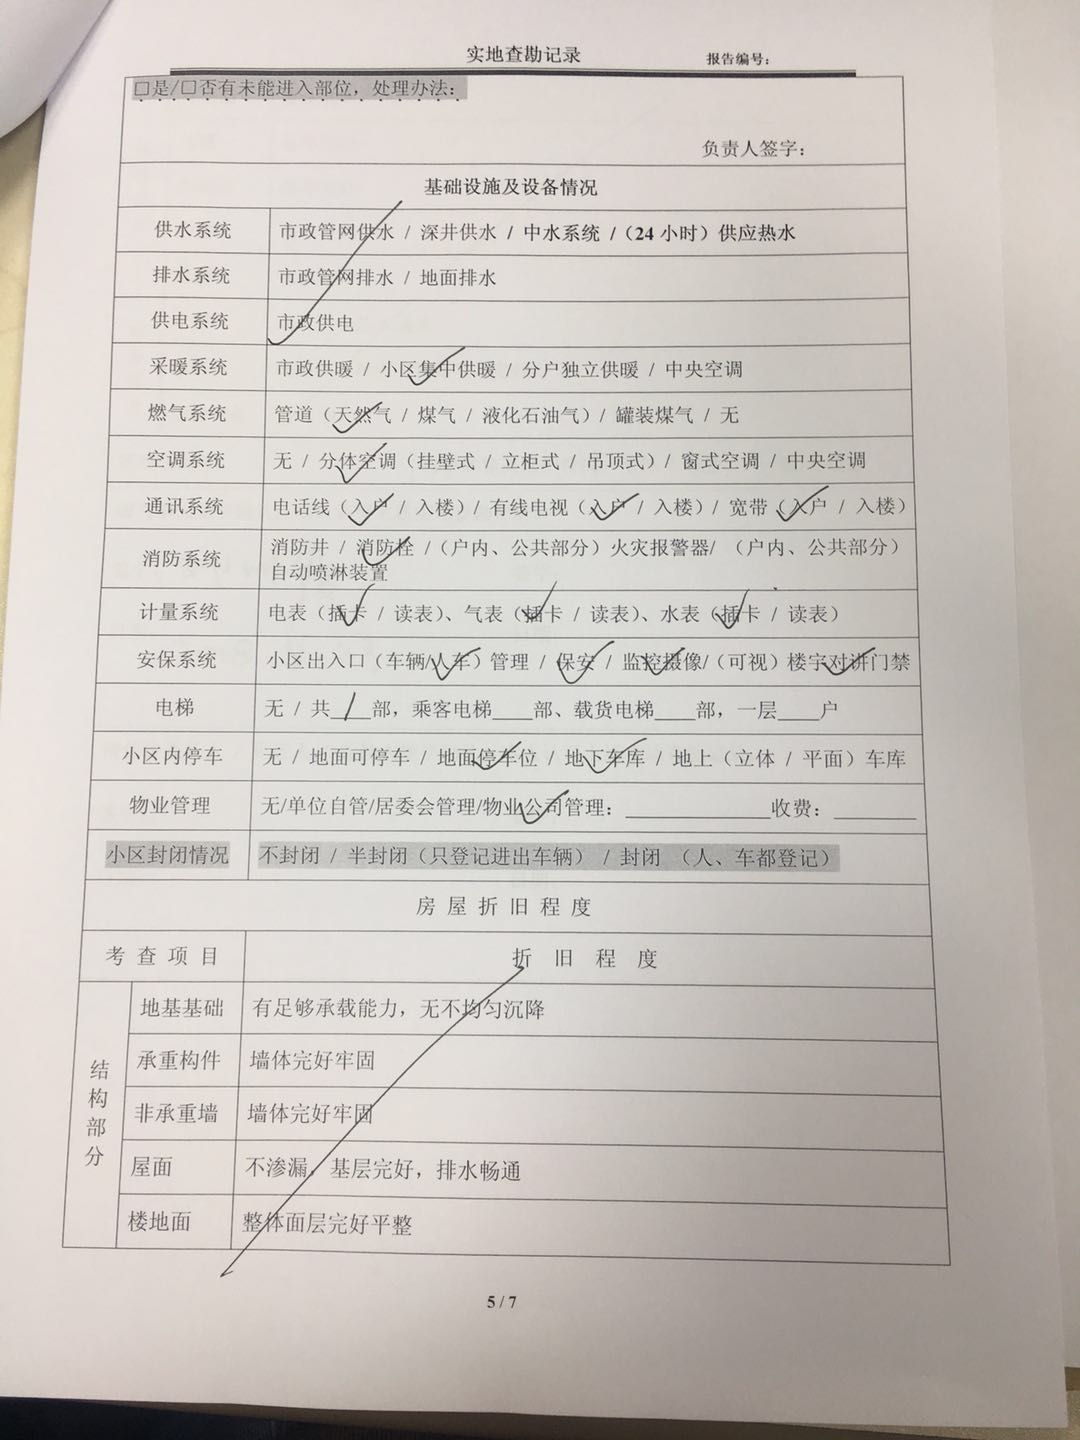 实地查勘记录 报告编号：
□是/□否有未能进入部位，处理办法：
负责人签字：
基础设施及设备情况
供水系统 市政管网供水 / 深井供水 / 中水系统 /（24 小时）供应热水
排水系统 市政管网排水 / 地面排水
供电系统 市政供电
采暖系统 市政供暖 / 小区集中供暖 / 分户独立供暖 / 中央空调
燃气系统 管道（天然气 / 煤气 / 液化石油气）/ 罐装煤气 / 无
空调系统 无 / 分体空调（挂壁式 / 立柜式 / 吊顶式）/ 窗式空调 / 中央空调
通讯系统 电话线（入户 / 入楼）/ 有线电视（入户 / 入楼）/ 宽带（入户 / 入楼）
消防系统 消防井 / 消防栓 /（户内、公共部分）火灾报警器/ （户内、公共部分）
自动喷淋装置
计量系统 电表（插卡 / 读表）、气表（插卡 / 读表）、水表（插卡 / 读表）
安保系统 小区出入口（车辆/人车）管理 / 保安 / 监控摄像/（可视）楼宇对讲门禁
电梯 无 / 共____部，乘客电梯____部、载货电梯____部，一层____户
小区内停车 无 / 地面可停车 / 地面停车位 / 地下车库 / 地上（立体 / 平面）车库
物业管理 无/单位自管/居委会管理/物业公司管理：______________收费：_________
小区封闭情况 不封闭 / 半封闭（只登记进出车辆） / 封闭 （人、车都登记）
房屋折旧程度
考查项目 折旧程度
结构部分
地基基础 有足够承载能力，无不均匀沉降
承重构件 墙体完好牢固
非承重墙 墙体完好牢固
屋面 不渗漏，基层完好，排水畅通
楼地面 整体面层完好平整
5 / 7